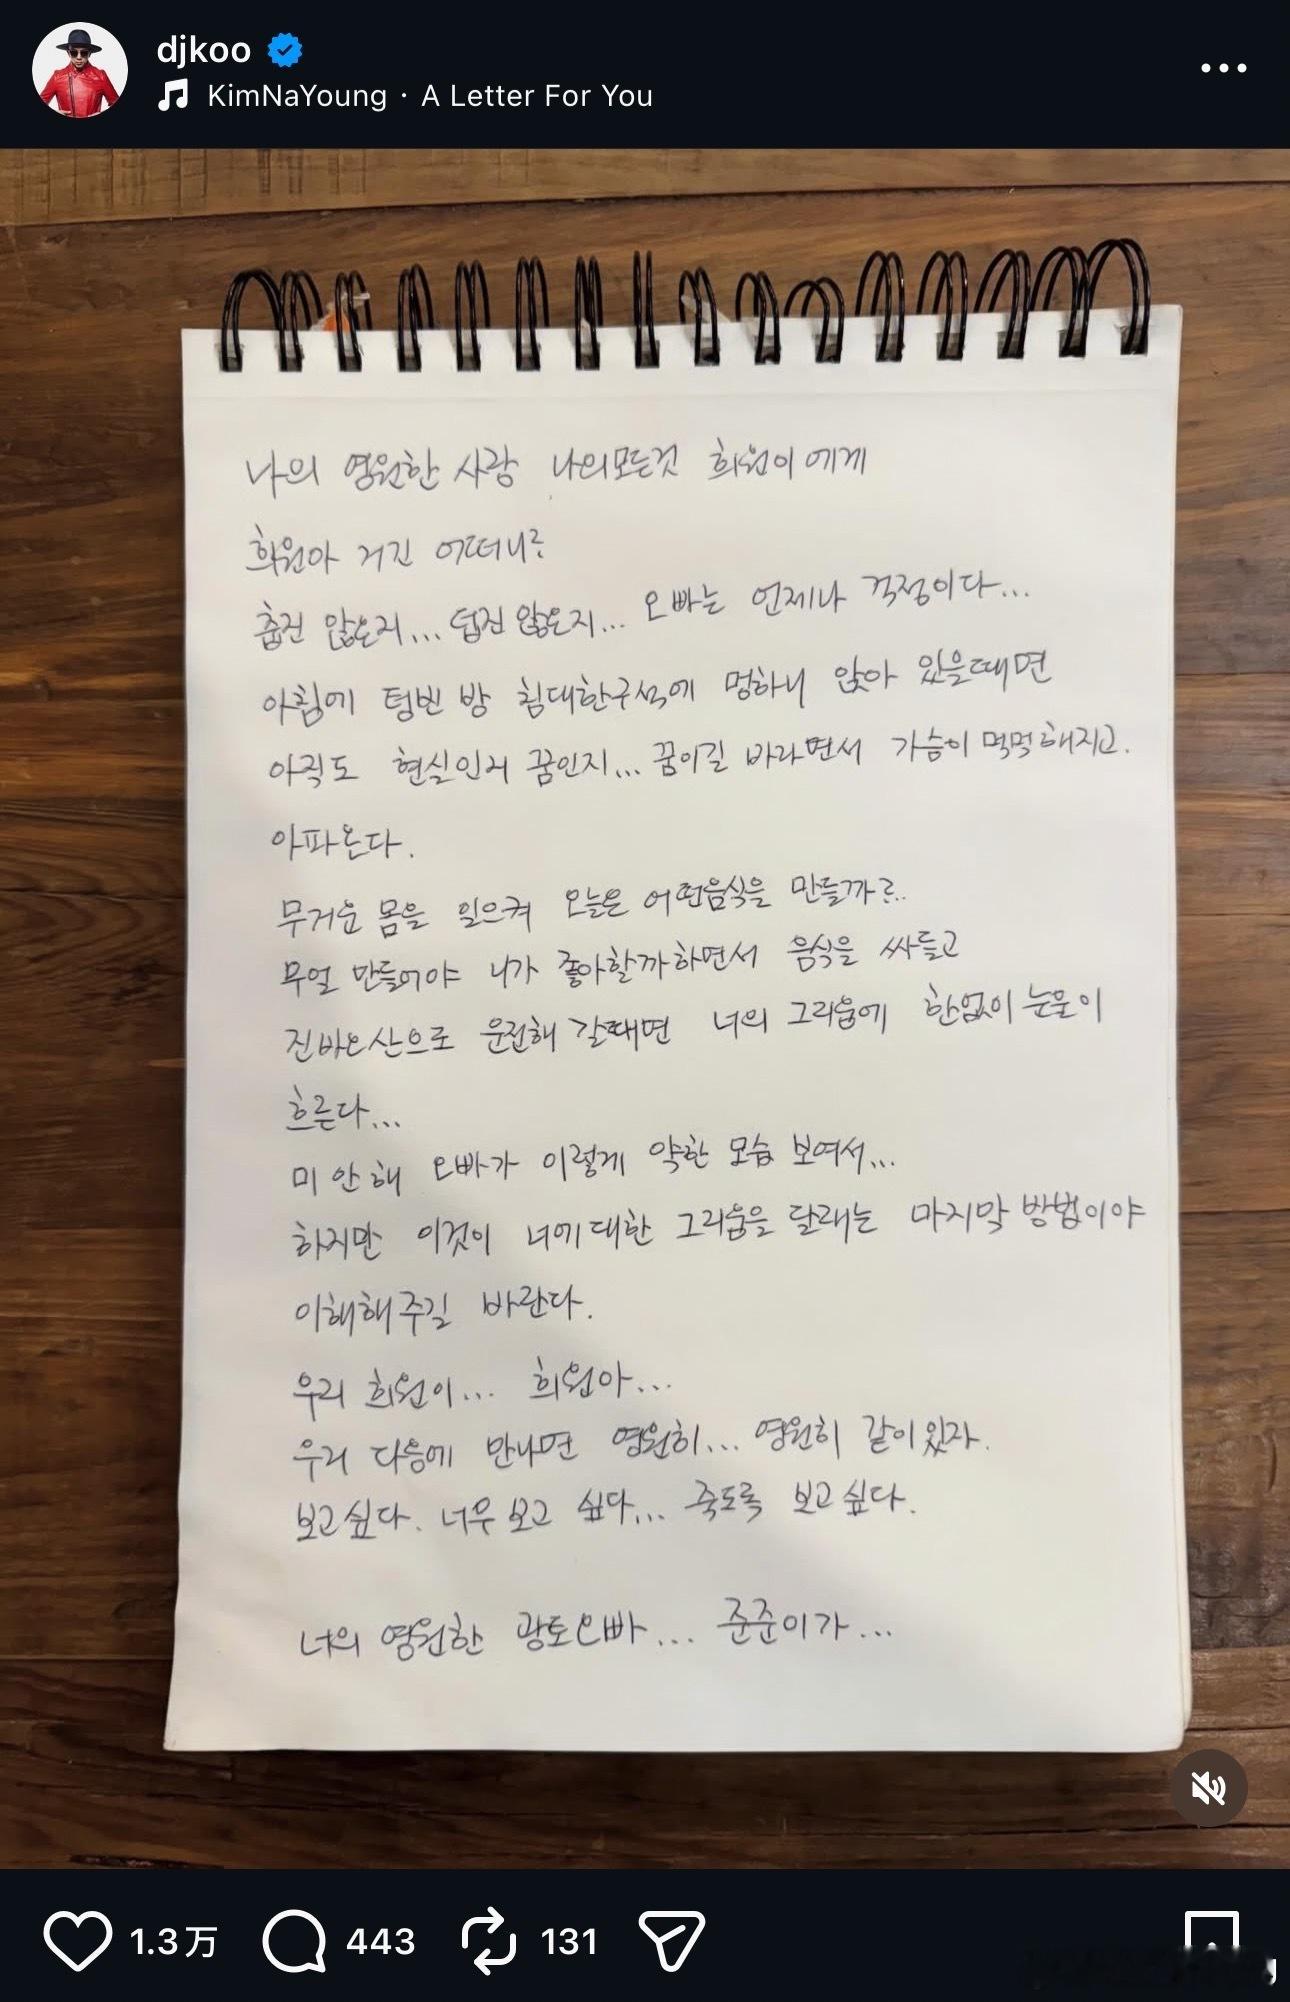 djkoo
KimNaYoung · A Letter For You
나의 영원한 사랑 나의모든것 희원이에게
희원아 거긴 어떠니?
춥진 않은지... 덥진 않은지... 오빠는 언제나 걱정이다...
아침에 텅빈 방 침대한구석에 멍하니 앉아 있을때면
아직도 현실인지 꿈인지... 꿈이길 바라면서 가슴이 먹먹해지고.
아파온다.
무거운 몸을 일으켜 오늘은 어떤음식을 만들까?..
무얼 만들어야 니가 좋아할까하면서 음식을 싸들고
진바오산으로 운전해 갈때면 너의 그리움에 한없이 눈물이
흐른다...
미안해 오빠가 이렇게 약한 모습 보여서...
하지만 이것이 너에대한 그리움을 달래는 마지막 방법이야
이해해주길 바란다.
우리 희원이... 희원아...
우리 다음에 만나면 영원히... 영원히 같이있자.
보고싶다. 너무 보고 싶다... 죽도록 보고싶다.
너의 영원한 광토오빠... 준준이가...
1.3万 443 131